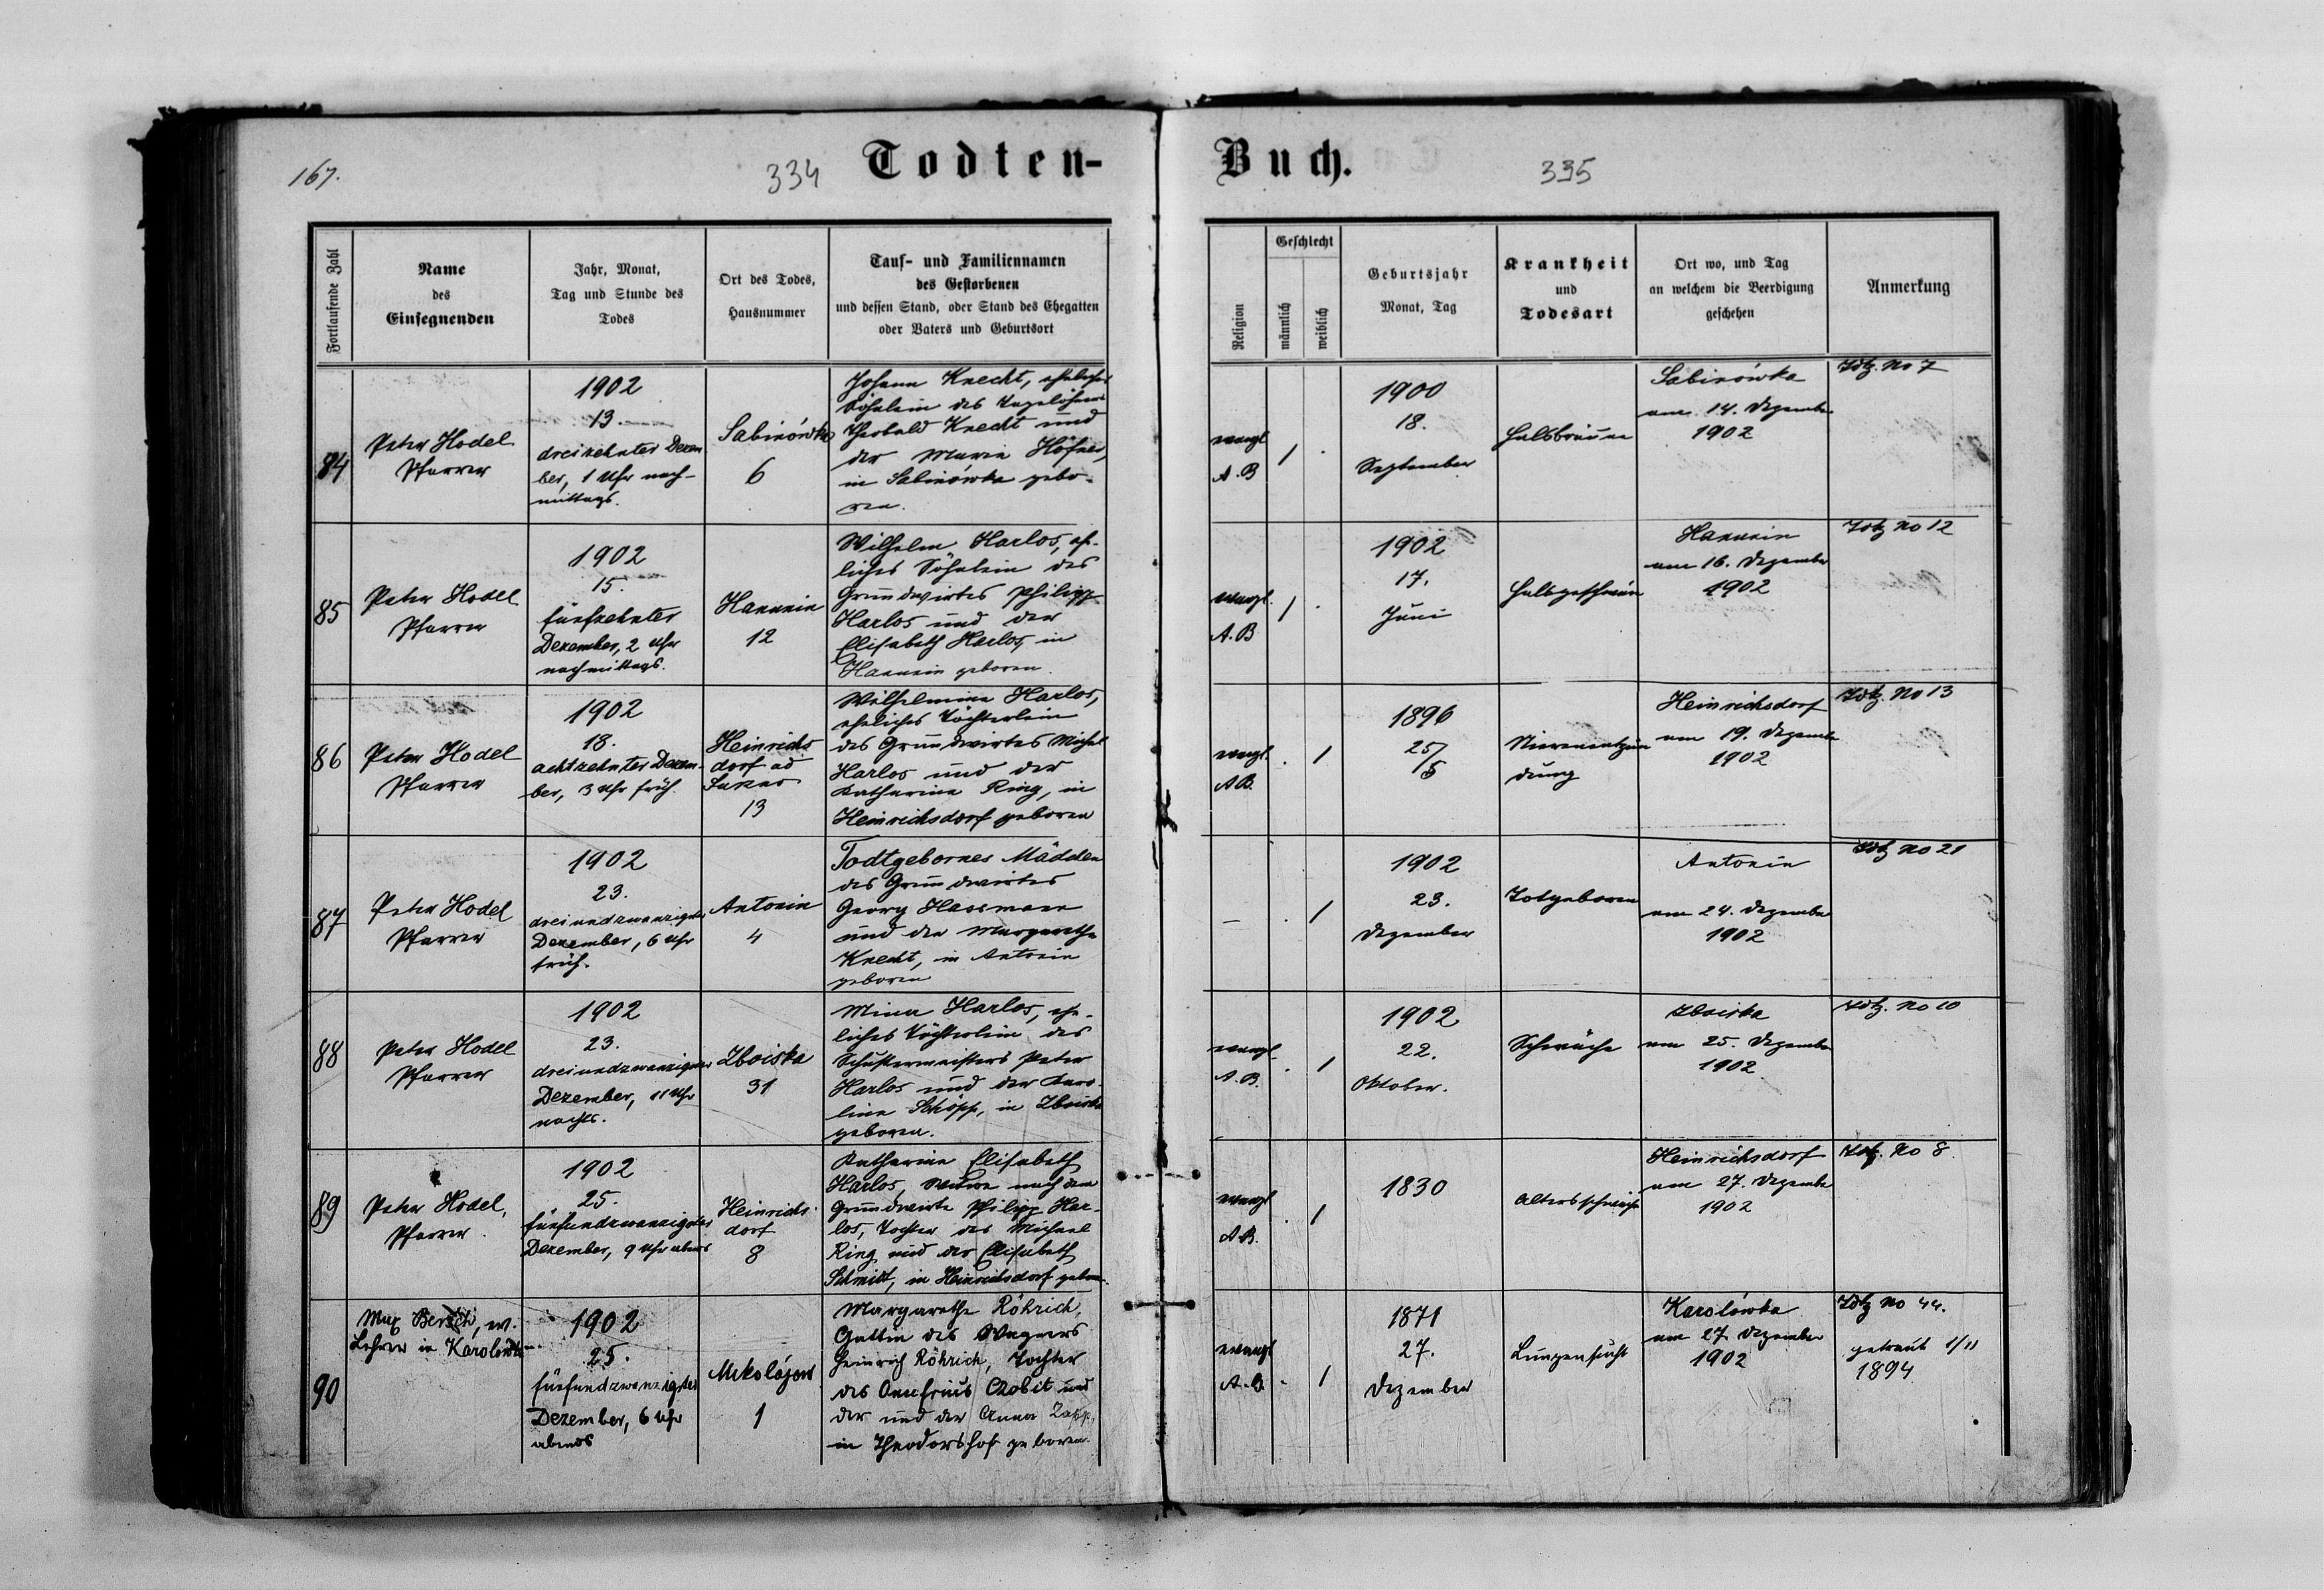 167.
334
Todten-
Fortlaufende Zahl
Name
des
Einsegnenden
Jahr, Monat,
Tag und Stunde des
Todes
Ort des Todes,
Hausnummer
Tauf- und Familiennamen
des Gestorbenen
und dessen Stand, oder Stand des Ehegatten
oder Vaters und Geburtsort
84
Peter Hodel
Pfarrer
1902
13.
dreizehnter Dezem
ber, 1 Uhr nach-
mittags.
Sabinówka
6
Johann Knecht, eheliches
Söhnlein des Tagelöhners
Theobald Knecht und
der Maria Höfner,
in Sabinówka gebo-
ren.
85
Peter Hodel
Pfarrer
1902
15.
fünfzehnter
Dezember, 2 Uhr
nachmittags.
Hanunin
12
Wilhelm Harlos, ehe-
liches Söhnlein des
Grundwirtes Philipp
Harlos und der
Elisabeth Harlos, in
Hanunin geboren.
86
Peter Hodel
Pfarrer
1902
18.
achtzehnter Dezem-
ber, 3 Uhr früh.
Heinrichs
dorf ad
13
Wilhelmine Harlos,
eheliches Töchterlein
des Grundwirtes Michel
Harlos und der
Katharina Ring, in
Heinrichsdorf geboren
87
Peter Hodel
Pfarrer
1902
23.
dreiundzwanzigster
Dezember, 6 Uhr
früh.
Antonin
4
Todtgebornes Mädchen
des Grundwirtes
Georg Hassmann
und der Margarethe
Knecht, in Antonin
geboren
88
Peter Hodel
Pfarrer
1902
23.
dreiundzwanzigster
Dezember, 11 Uhr
nachts.
Zboiska
31
Mina Harlos, ehe-
liches Töchterlein des
Schustermeisters Peter
Harlos und der Karo-
lina Schöpp, in Zboiska
geboren.
89
Peter Hodel,
Pfarrer.
1902
25.
fünfundzwanzigster
Dezember, 9 Uhr abends
Heinrichs-
dorf
8
Katharina Elisabeth
Harlos, Witwe nach dem
Grundwirte Philipp Har-
los, Tochter des Michael
Ring und der Elisabeth
Schmidt, in Heinrichsdorf gebor.
90
Max Bersch, ev.
Lehrer in Karolówka
1902
25.
fünfundzwanzigster
Dezember, 6 Uhr
abends
Mikolájow
1
Margarethe Röhrich,
Gattin des Wagners
Heinrich Röhrich, Tochter
des Onufrius Czobit und
der und der Anna
in Theodorshof geboren.
Buch.
335
Religion
Geschlecht
männlich
weiblich
Geburtsjahr
Monat, Tag
Krankheit
und
Todesart
Ort wo, und Tag
an welchem die Beerdigung
geschehen
Anmerkung
evangl
A. B
1
1900
18.
September
Halsbräune
Sabinówka
am 14. Dezember
1902
No 7
evangl.
A. B
1
1902
17.
Juni
Hanunin
am 16. Dezember
1902
No 12
evangl.
A B.
1
1896
25/
5
Nierenentzün
dung
Heinrichsdorf
am 19. Dezember
1902
No 13
-
1
1902
23.
Dezember
Totgeboren
Antonin
am 24. Dezember
1902
No 21
evangl.
A. B.
1
1902
22.
Oktober.
Schwäche
Zboiska
am 25. Dezember
1902
evangl
A. B.
1
1830
Altersschwäche
Heinrichsdorf
am 27. Dezember
1902
No 8
evangl
A. B.
1
1871
27.
Dezember
Lungensucht
Karolówka
am 27. Dezember
1902
No 44.
getraut 1/11
1894